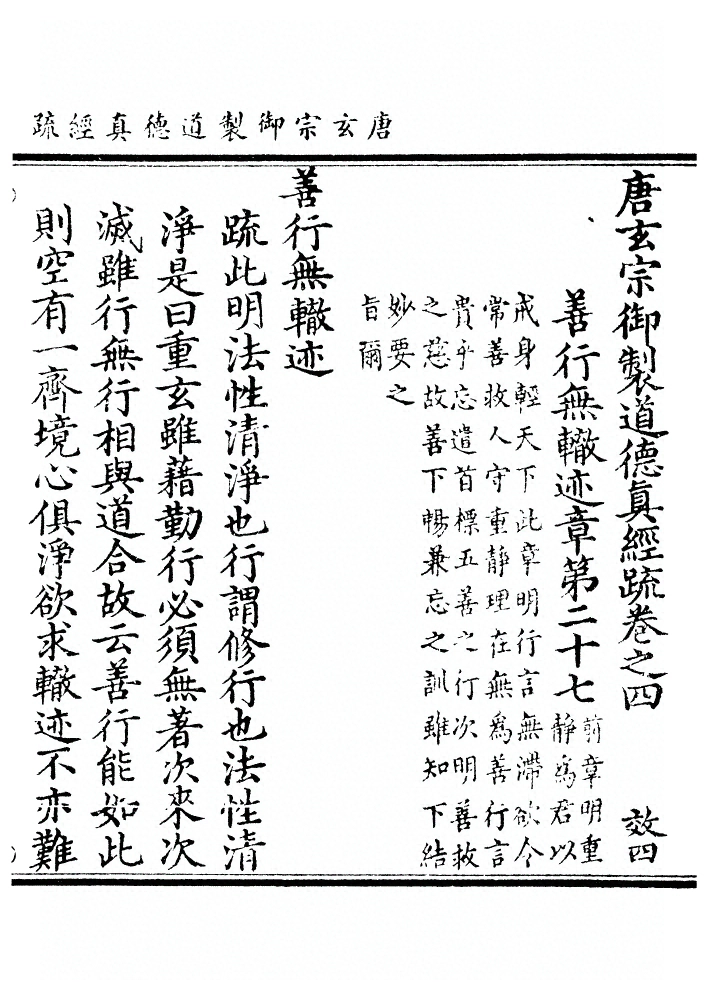 唐玄宗御製道德真經疏
唐玄宗御製道德眞經疏卷之四　效四
善行無轍迹章第二十七
前章明重
靜爲君以
戒身輕天下此章明行言無滯欲令
常善救人守重靜理在無爲善行言
貴乎忘遣首標五善之行次明善救
之慈故善下暢兼忘之訓雖知下結
妙要之
旨爾
善行無轍迹
疏此明法性清淨也行謂修行也法性清
淨是曰重玄雖藉勤行必須無著次來次
滅雖行無行相與道合故云善行能如此
則空有一齊境心俱淨欲求轍迹不亦難